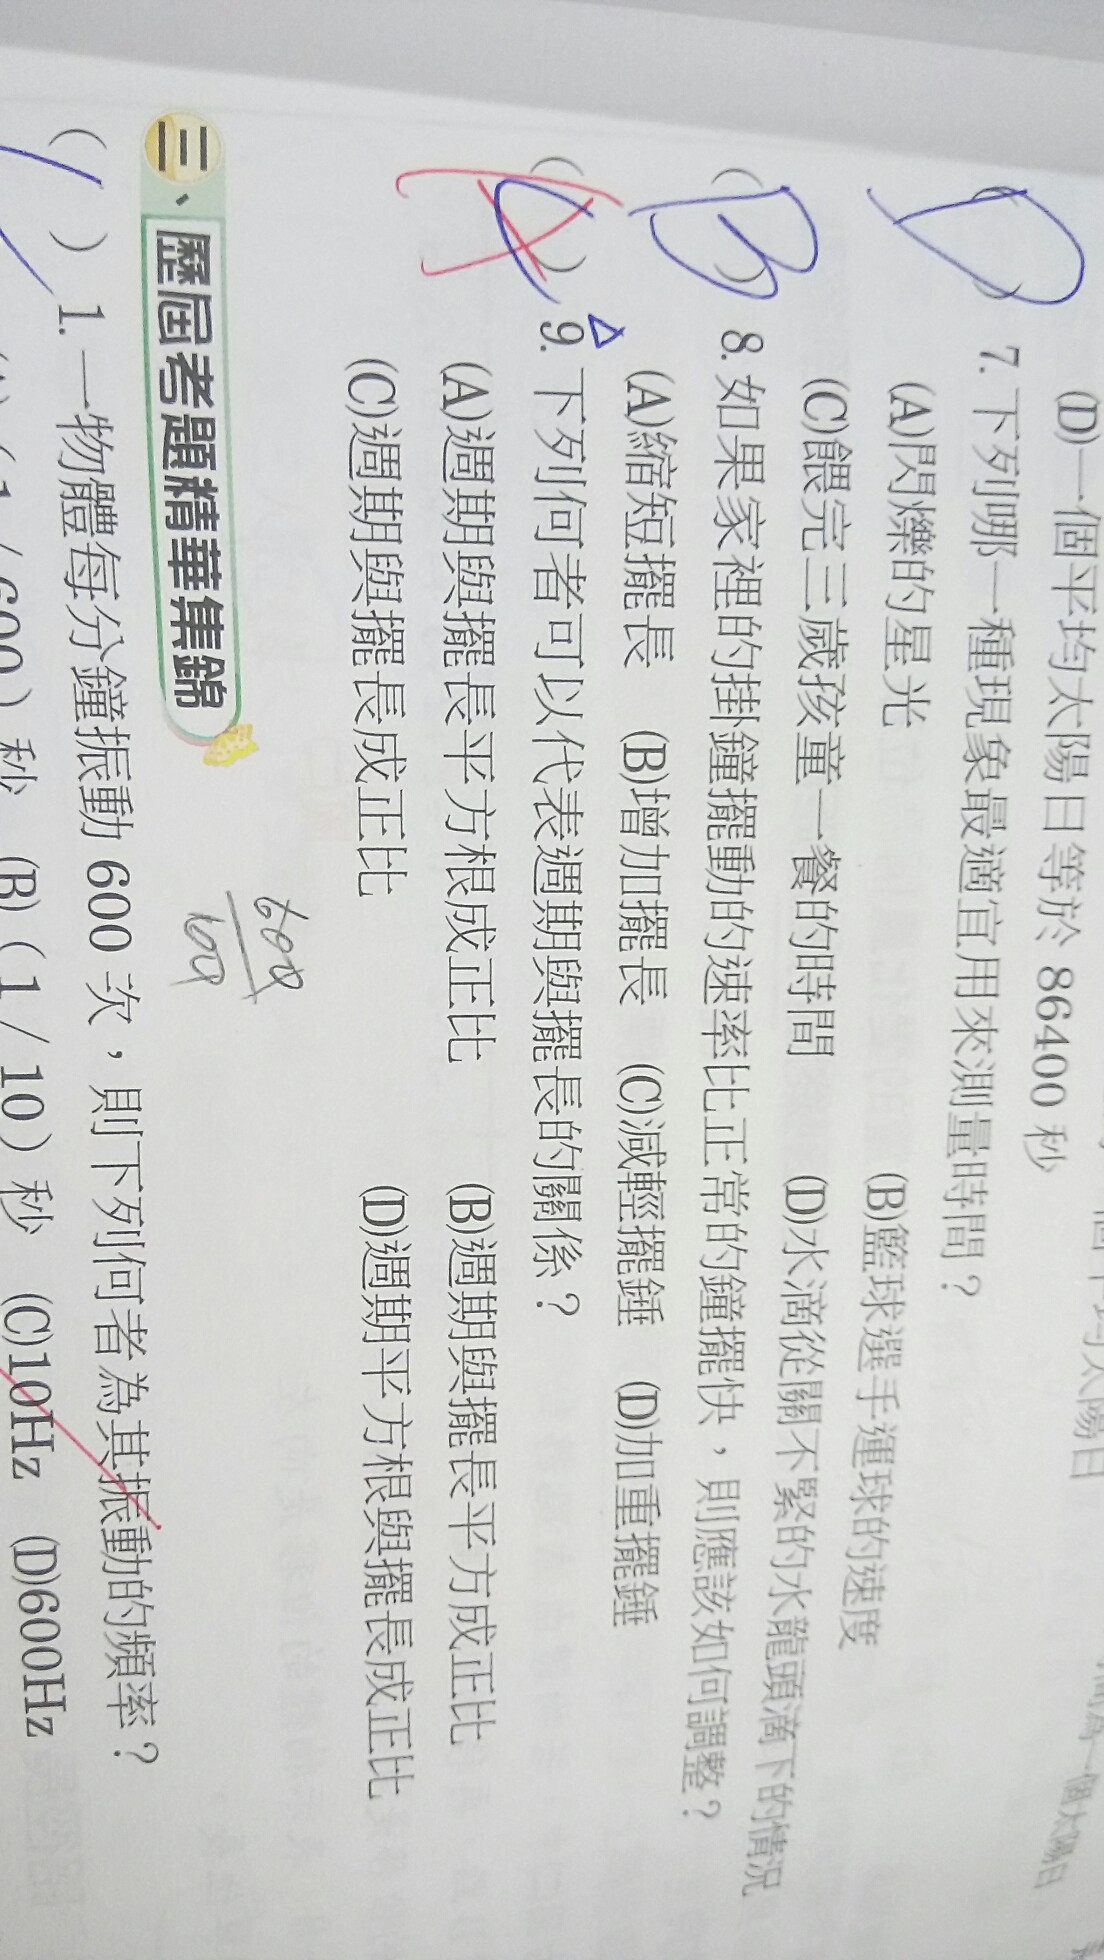 (D)一個平均太陽日等於 86400 秒
D
( ) 7. 下列哪一種現象最適宜用來測量時間？
(A)閃爍的星光 (B)籃球選手運球的速度
(C)餵完三歲孩童一餐的時間 (D)水滴從關不緊的水龍頭滴下的情況
B
( ) 8. 如果家裡的掛鐘擺動的速率比正常的鐘擺快，則應該如何調整？
(A)縮短擺長 (B)增加擺長 (C)減輕擺錘 (D)加重擺錘
A
( ) 9. 下列何者可以代表週期與擺長的關係？
(A)週期與擺長平方根成正比 (B)週期與擺長平方成正比
(C)週期與擺長成正比 (D)週期平方根與擺長成正比
三、歷屆考題精華集錦
600
( ) 1. 一物體每分鐘振動 600 次，則下列何者為其振動的頻率？
(1/600) 秒 (B)（1/10）秒 (C)10Hz (D)600Hz